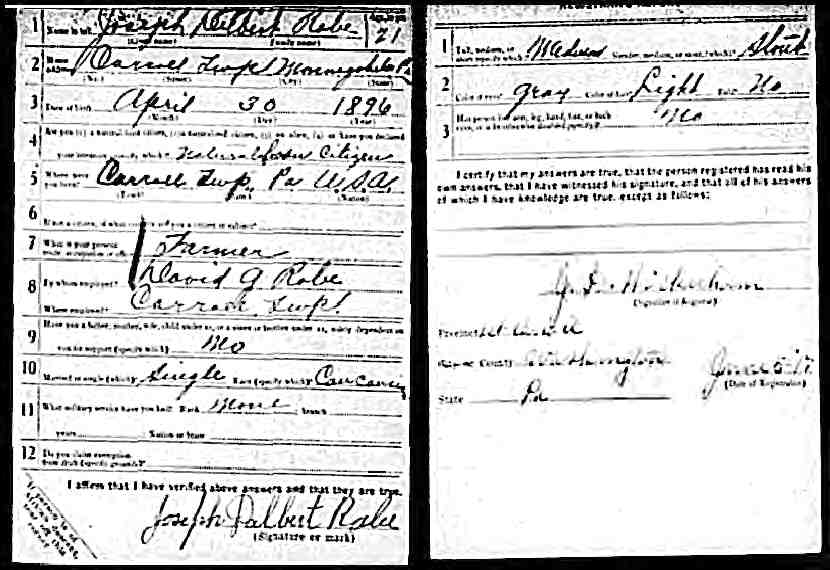 1 Name in full Joseph Delbert Robe 21
(Given name) (Family name)
2 Home address Carroll Twp Monongahela Pa
(No.) (Street) (City) (State)
3 Date of birth April 30 1896
(Month) (Day) (Year)
4 Are you (1) a natural born citizen, (2) a naturalized citizen, (3) an alien, (4) or have you declared
your intention (specify which)? Natural born Citizen
5 Where were you born? Carroll Twp. Pa U.S.A.
(Town) (State) (Nation)
6 If not a citizen, of what country are you a citizen or subject?
7 What is your present trade, occupation or office? Farmer
8 By whom employed? David G Robe
Where employed? Carroll Twp.
9 Have you a father, mother, wife, child under 12, or a sister or brother under 12, solely dependent on
you for support (specify which)? No
10 Married or single (which)? Single Race (specify which)? Caucasian
11 What military service have you had? Rank None branch
years Nation or State
12 Do you claim exemption
from draft (specify grounds)?
I affirm that I have verified above answers and that they are true.
Joseph Dalbert Robe
(Signature or mark)
If person is of African descent, tear off this corner
1 Tall, medium, or short (specify which)? Medium Slender, medium, or stout (which)? Stout
2 Color of eyes? gray Color of hair? Light Bald? No
3 Has person lost arm, leg, hand, foot, or both
eyes, or is he otherwise disabled (specify)? No
I certify that my answers are true, that the person registered has read his
own answers, that I have witnessed his signature, and that all of his answers
of which I have knowledge are true, except as follows:
(Signature of Registrar)
Precinct
County Washington June 5 '17
State Pa (Date of Registration)